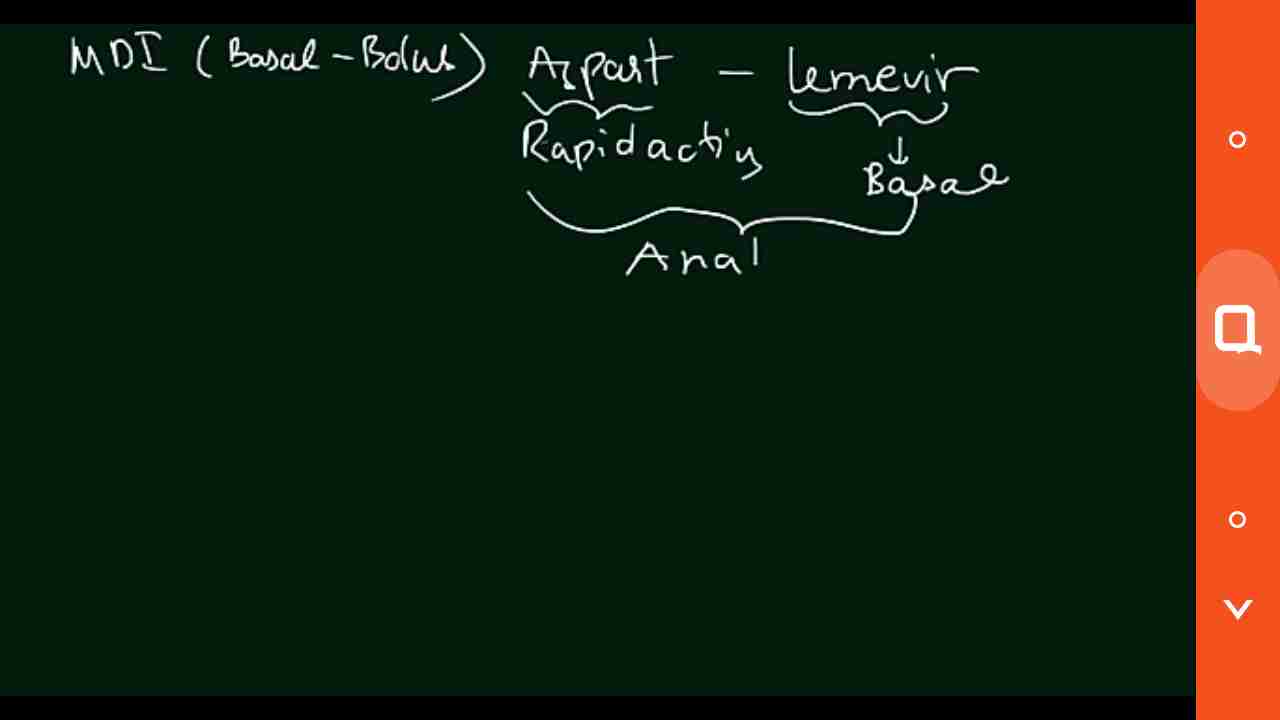 MDI (Basal - Bolus) Aspart - lemevir
Rapidactig
↓
Basal
Anal